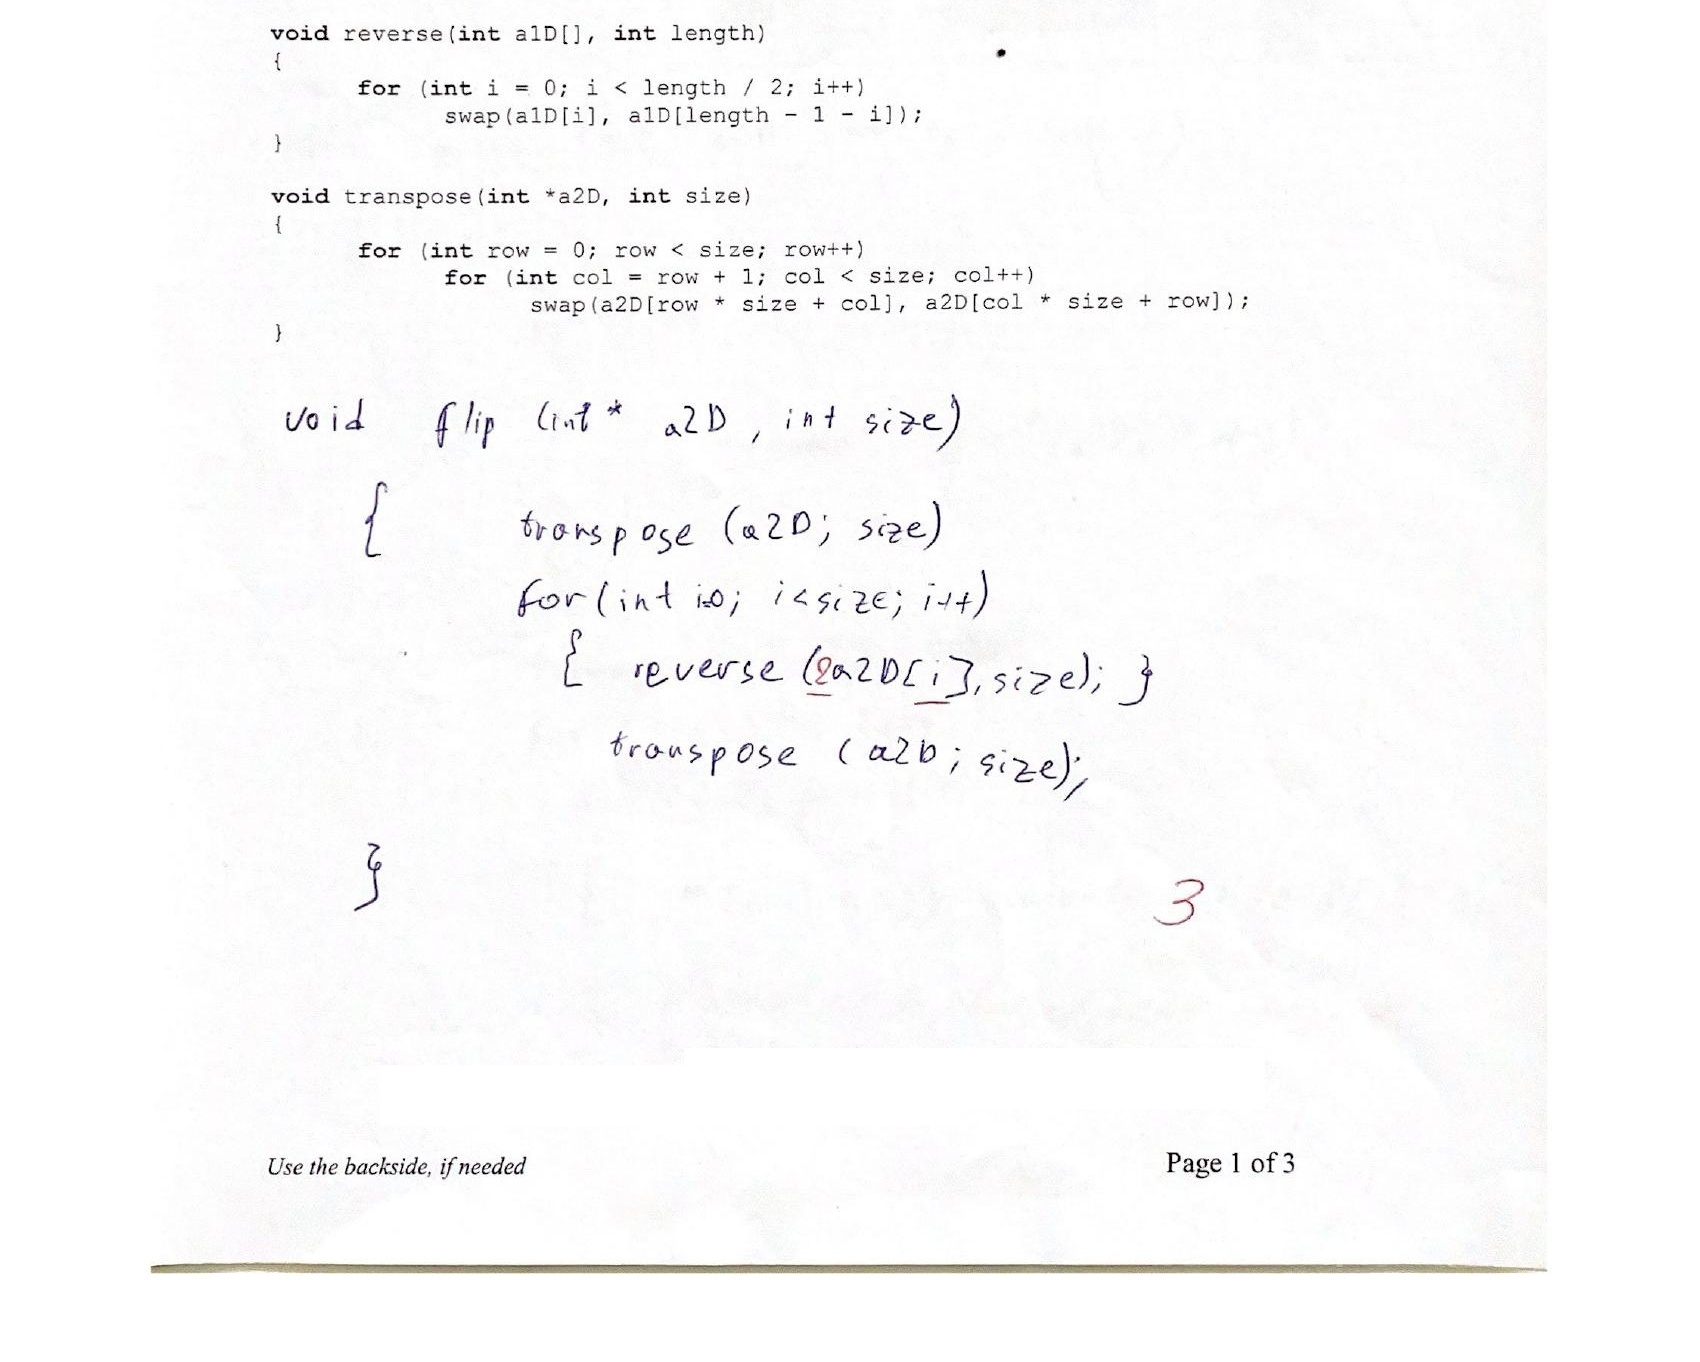 void reverse(int a1D[], int length)
{
for (int i = 0; i < length / 2; i++)
swap(a1D[i], a1D[length - 1 - i]);
}
void transpose(int *a2D, int size)
{
for (int row = 0; row < size; row++)
for (int col = row + 1; col < size; col++)
swap(a2D[row * size + col], a2D[col * size + row]);
}
void flip (int* a2D, int size)
{ transpose (a2D; size)
for(int i=0; i<size; i++)
{ reverse (&a2D[i], size); }
transpose (a2D; size);
}
3
Use the backside, if needed Page 1 of 3